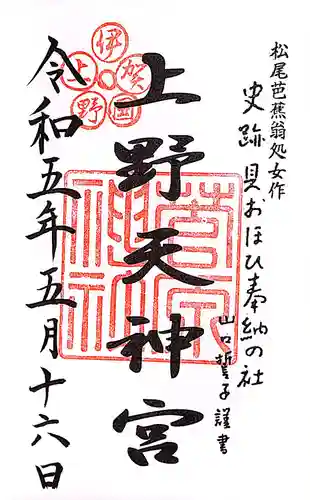 松尾芭蕉翁処女作
史跡貝おほひ奉納の社
山口誓子謹書
上野天神宮
伊賀国上野
令和五年五月十六日